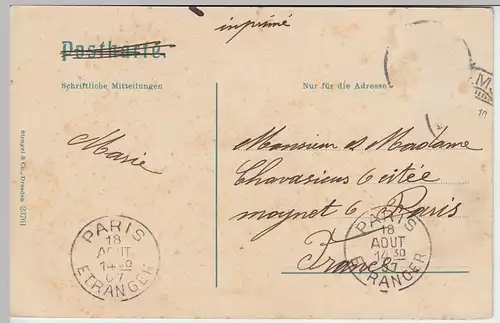 imprimé
Postkarte.
Schriftliche Mitteilungen
Nur für die Adresse
Marie
Monsieur et Madame
Chavasius 6 citée
moynet 6 Paris
France
Stengel & Co., Dresden
PARIS
18
AOUT
14 30
07
ETRANGER
PARIS
18
AOUT
14 30
07
ETRANGER